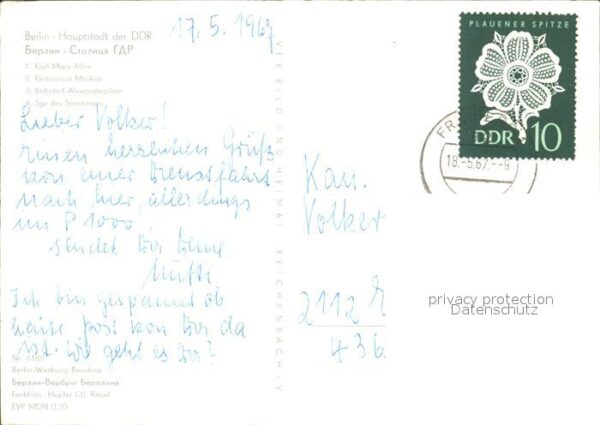 Berlin - Hauptstadt der DDR
Берлин - Столица ГДР
1. Karl-Marx-Allee
2. Restaurant Moskau
3. Bahnhof Alexanderplatz
4. Sitz des Staatsrates
17. 5. 1967
Lieber Volker!
einen herzlichen Gruß
von einer Dienstfahrt
nach hier, allerdings
im P 1000
sendet Dir Deine
Mutti
Ich bin gespannt ob
heute Post von Dir da
ist. Wie geht es Dir?
Berlin-Werbung Berolina
Берлин-Вербунг Беролина
EVP MDN 0,20
VEB BILD UND HEIMAT REICHENBACH i. V.
PLAUENER SPITZE
DDR 10
18.-5.67.--9
Kan.
Volker
2112
436
privacy protection
Datenschutz